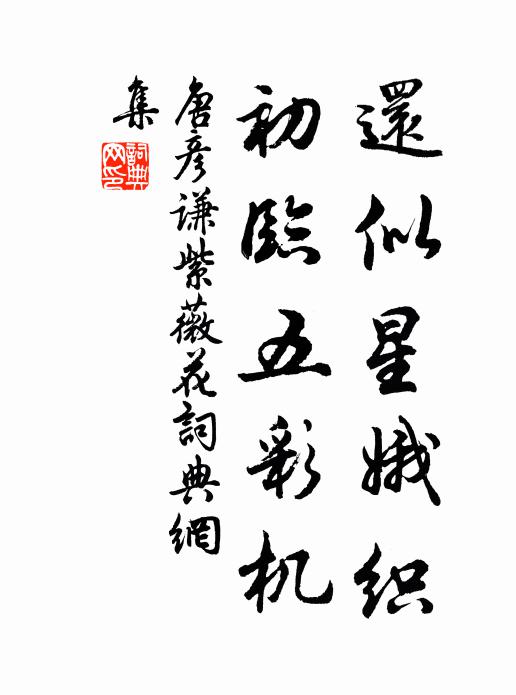 還似星娥织
初臨五彩机
唐彦谦紫薇花詞典網
集
詞典網印